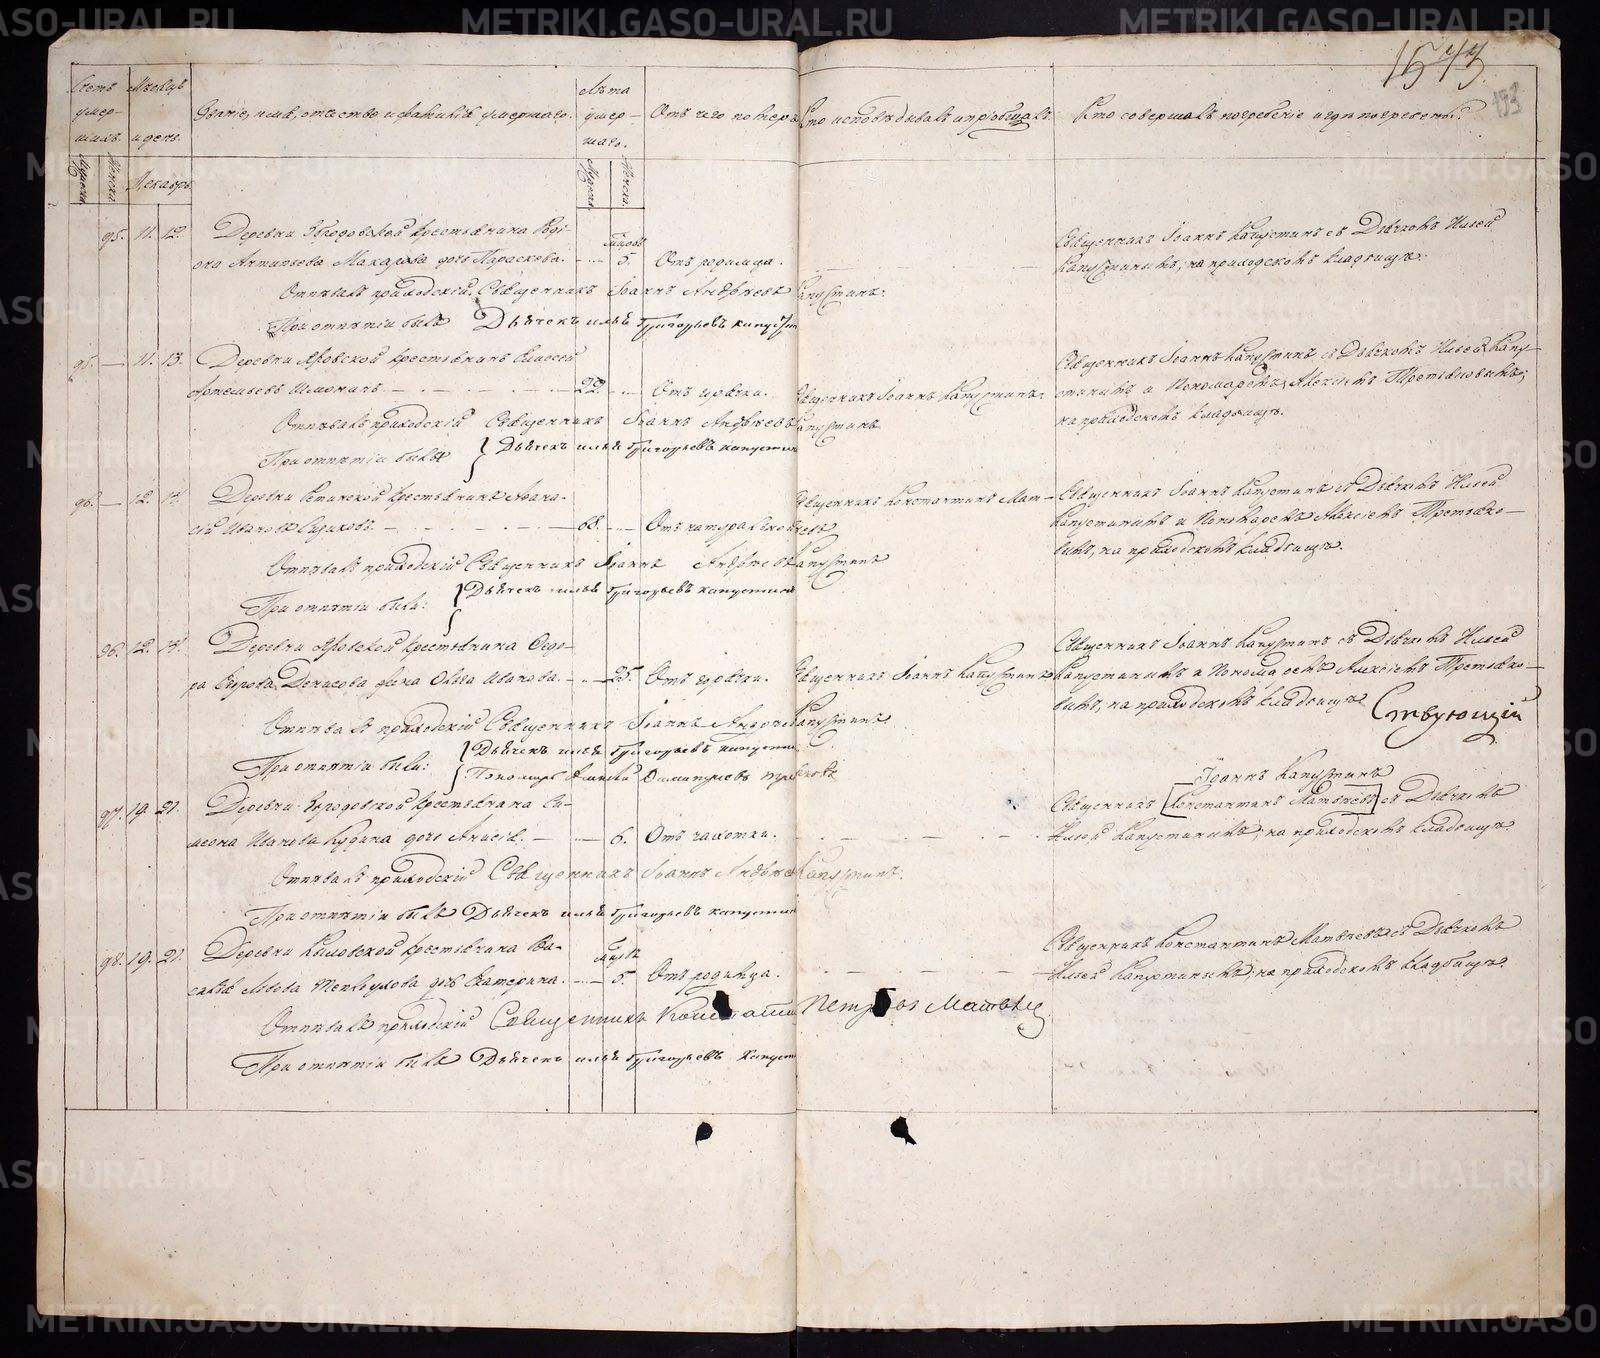 1543
193
Счетъ умер-шихъ.
Мѣсяцъ и день.
Званіе, имя, отчество и фамилія умершаго.
Лѣта умер-шаго.
Отъ чего померъ
Кто исповѣдывалъ и пріобщалъ.
Кто совершалъ погребеніе и гдѣ погребены?
Мужска.
Женска.
Декабрь.
Мужска.
Женска.
95. 11. 12. Деревни крестьянина Роді-
она Антипьева Макарова дочь Параскева. 5. Отъ родимца.
Священникъ Іоаннъ Капустинъ съ Дьячкомъ Ильей
Капустинымъ, на приходскомъ кладбищѣ.
Отпѣвалъ приходскій Священникъ Іоаннъ Андреевъ Капустинъ.
При отпѣтіи былъ Дьячекъ Илья Григорьевъ Капустин
95. — 11. 13. Деревни крестьянинъ
Артемьевъ 22. Отъ горячки. Священникъ Іоаннъ Капустинъ.
Священникъ Іоаннъ Капустинъ съ Дьячкомъ Ильей Капу-
стинымъ и Пономаремъ Алексіемъ Третьяковымъ,
на приходскомъ кладбищѣ.
Отпѣвалъ приходскій Священникъ Іоаннъ Андреевъ Капустинъ
При отпѣтіи былъ Дьячекъ Илья Григорьевъ Капустин
96. — 12. 14. Деревни крестьянинъ Афана-
сій Ивановъ 68. Отъ натуральной Священникъ Константинъ Мат-
вѣевъ
Священникъ Іоаннъ Капустинъ съ Дьячкомъ Ильей
Капустинымъ и Пономаремъ Алексіемъ Третьяко-
вымъ, на приходскомъ кладбищѣ.
Отпѣвалъ приходскій Священникъ Іоаннъ Андреевъ Капустинъ
При отпѣтіи были: Дьячекъ Илья Григорьевъ Капустинъ
96. 12. 14. Деревни крестьянина Ѳедо-
ра Денисова жена Ольга Иванова. 25. Отъ горячки. Священникъ Іоаннъ Капустинъ
Священникъ Іоаннъ Капустинъ съ Дьячкомъ Ильей
Капустинымъ и Пономаремъ Алексіемъ Третьяко-
вымъ, на приходскомъ кладбищѣ
Ствующій
Отпѣвалъ приходскій Священникъ Іоаннъ Андреевъ Капустинъ.
При отпѣтіи были: Дьячекъ Илья Григорьевъ Капустин
Пономарь Алексѣй
97. 19. 21. Деревни крестьянина Си-
меона Иванова дочь Анисія. 6. Отъ чахотки.
Іоаннъ Капустинъ
Священникъ [Константинъ Матвѣевъ] съ Дьячкомъ
Ильей Капустинымъ, на приходскомъ кладбищѣ.
Отпѣвалъ приходскій Священникъ Іоаннъ Андреевъ Капустинъ.
При отпѣтіи былъ Дьячекъ Илья Григорьевъ Капустин
98. 19. 21. Деревни крестьянина Ва-
силія Львова дочь Екатерина. 5. Отъ родимца.
Священникъ Константинъ Матвѣевъ съ Дьячкомъ
Ильей Капустинымъ, на приходскомъ кладбищѣ.
Отпѣвалъ приходскій Священникъ Матвѣев
При отпѣтіи былъ Дьячекъ Илья Григорьевъ Капустин
METRIKI.GASO-URAL.RU